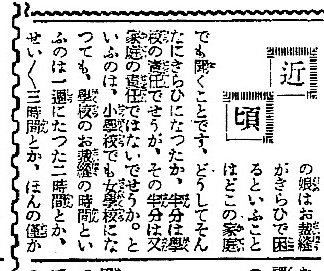 近頃
の娘はお裁縫
がきらひで困
るといふこと
はどこの家庭
でも聞くことです、どうしてそん
なにきらひになつたか、半分は學
校の責任でせうが、その半分は又
家庭の責任ではないでせうか。と
いふのは、小學校でも女學校にな
つても、學校のお裁縫の時間とい
ふのは一週にたつた二時間とか、
せい〲三時間とか、ほんの僅か